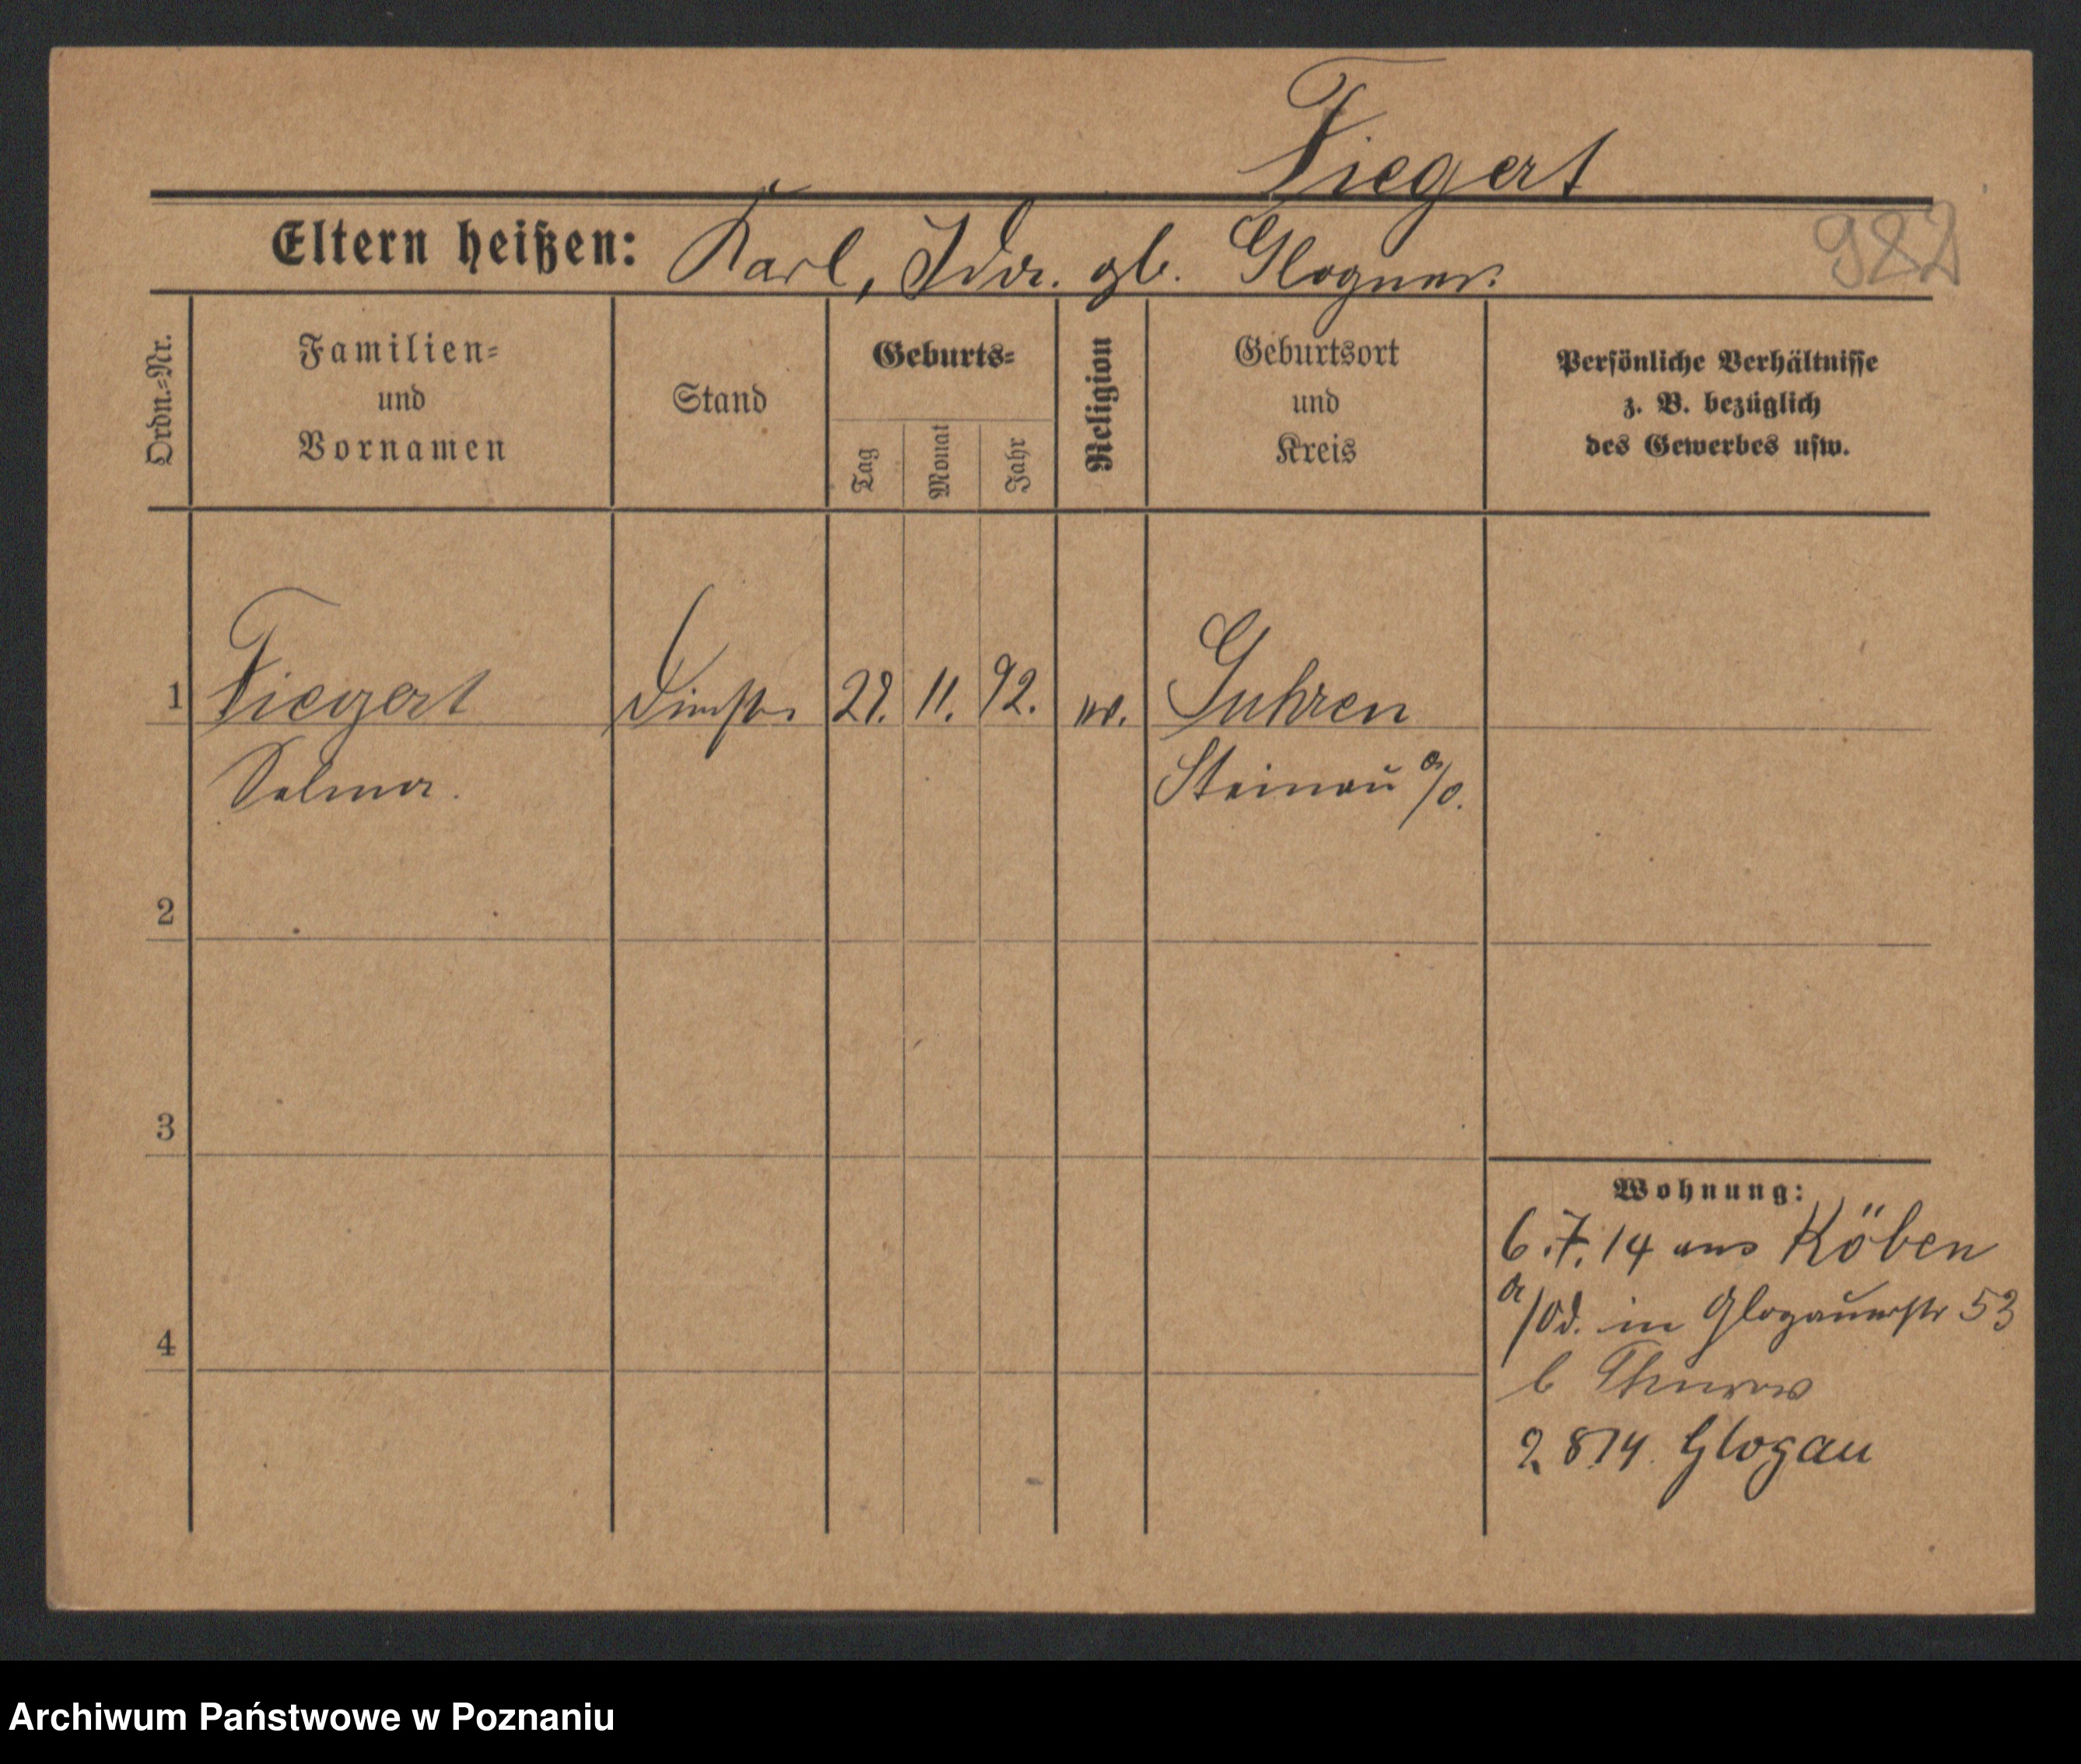 Fiegert
Eltern heißen: Karl, Ida gb. Glogner.
982
Ordn.-Nr.
Familien-
und
Vornamen
Stand
Geburts-
Tag
Monat
Jahr
Religion
Geburtsort
und
Kreis
Persönliche Verhältnisse
z. B. bezüglich
des Gewerbes usw.
1 Fiegert 11. 92. Guhren
Selma. Steinau a/O.
2
3
4
Wohnung:
6.7.14 aus Köben
a/Od. in Glogauerstr 53
b Thurow
2.8.14. Glogau
Archiwum Państwowe w Poznaniu